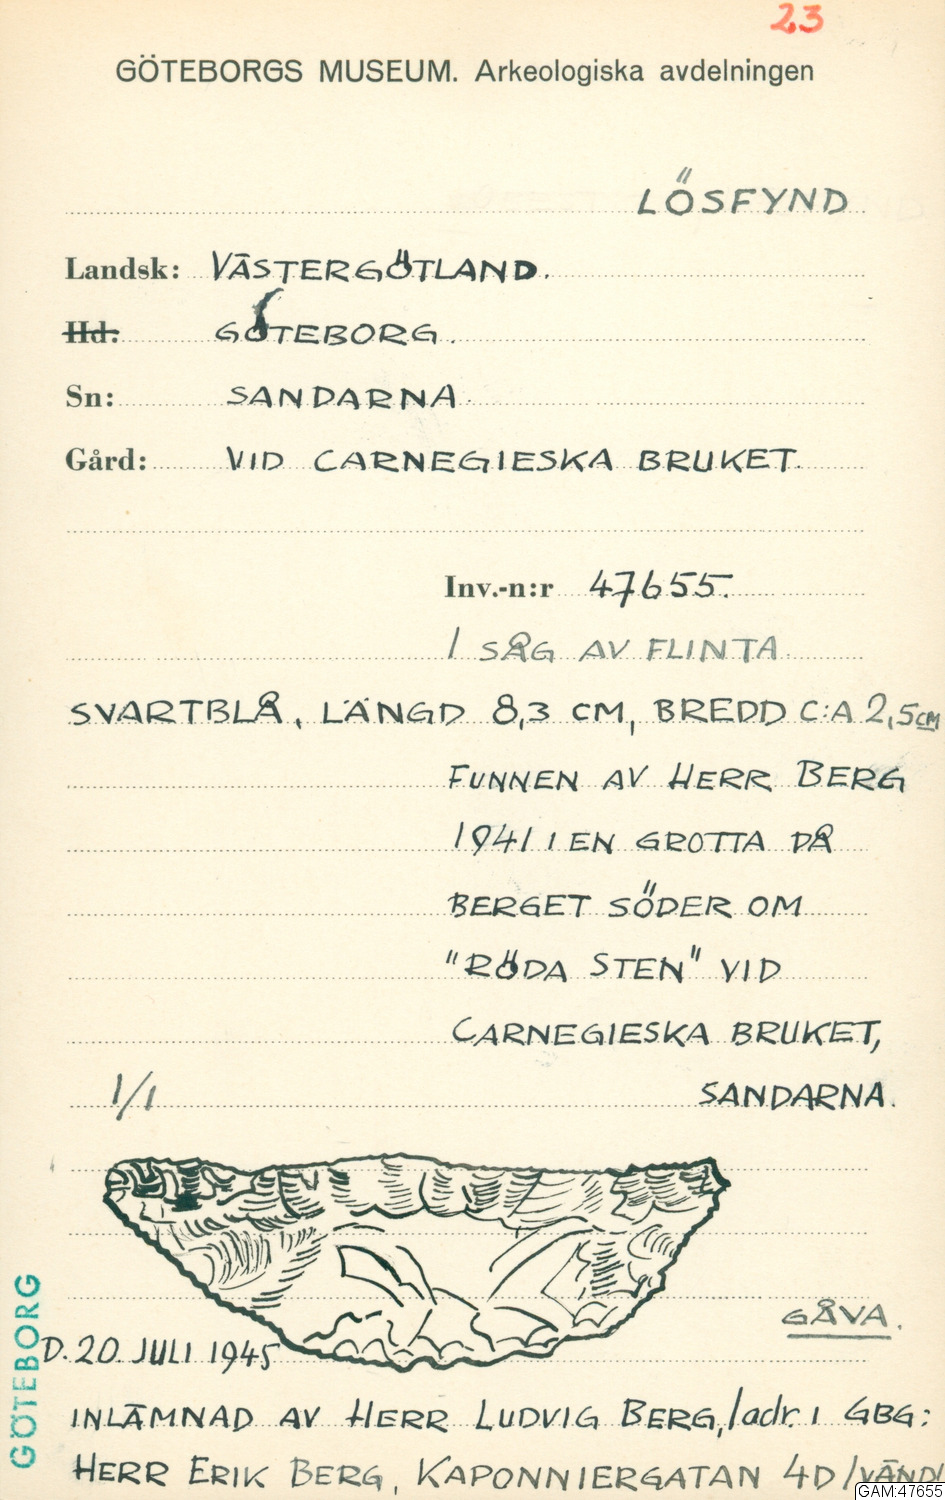 23
GÖTEBORGS MUSEUM. Arkeologiska avdelningen
LÖSFYND
Landsk: VÄSTERGÖTLAND.
Hd: GÖTEBORG.
Sn: SANDARNA.
Gård: VID CARNEGIESKA BRUKET.
Inv.-n:r 47655.
1 SÅG AV FLINTA.
SVARTBLÅ, LÄNGD 8,3 CM, BREDD C:A 2,5 CM
FUNNEN AV HERR BERG
1941 I EN GROTTA PÅ
BERGET SÖDER OM
"RÖDA STEN" VID
CARNEGIESKA BRUKET,
1/1 SANDARNA.
GÅVA.
GÖTEBORG
D. 20. JULI 1945
INLÄMNAD AV HERR LUDVIG BERG, /adr. I GBG:
HERR ERIK BERG, KAPONNIERGATAN 4D /VÄND!
GAM:47655